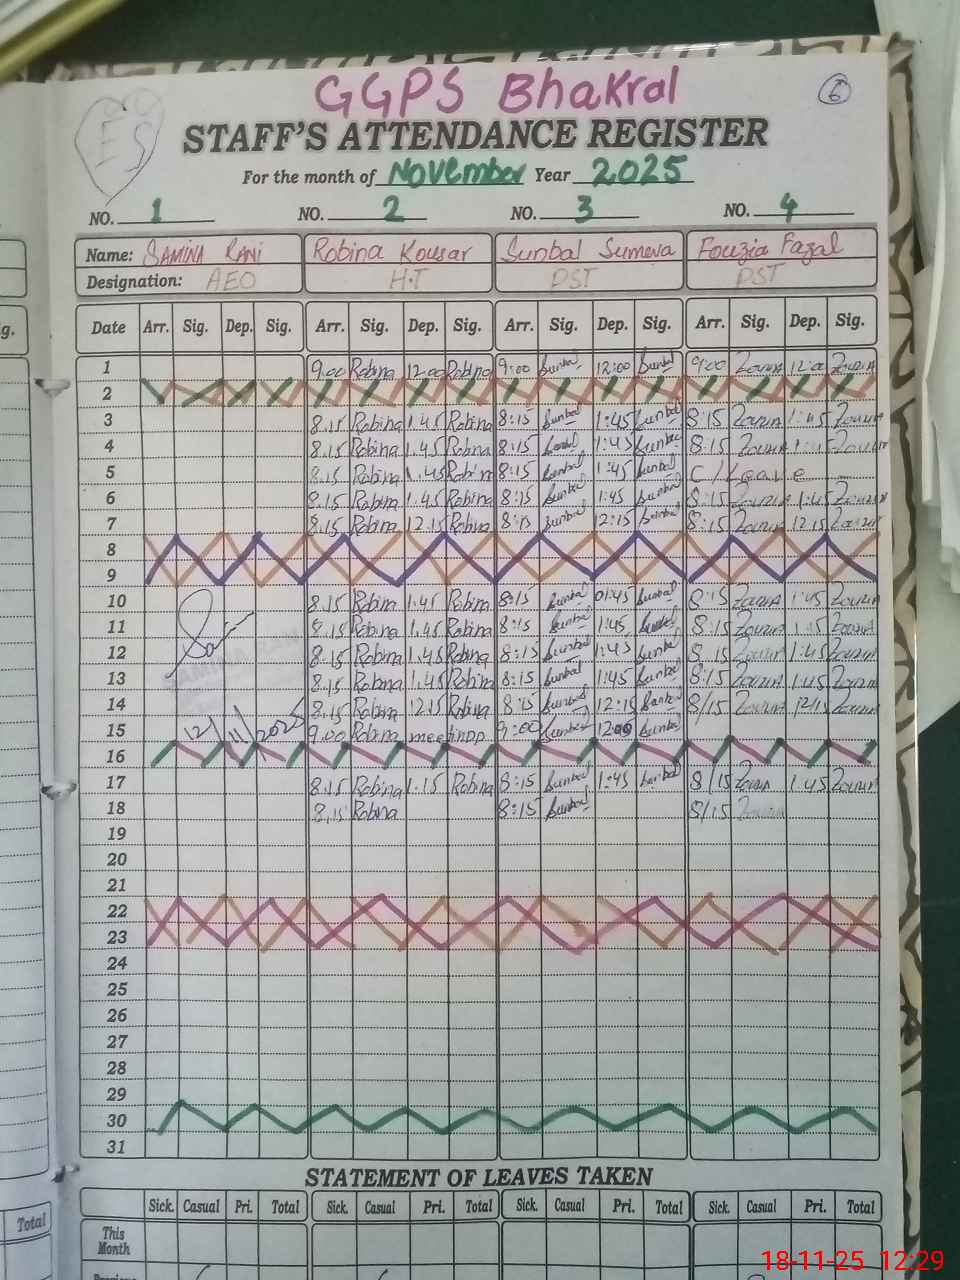 GGPS Bhakral
6
ES
STAFF'S ATTENDANCE REGISTER
For the month of November Year 2025
NO. 1 NO. 2 NO. 3 NO. 4
Name: SAMINA RANI Robina Kousar Sunbal Sumera Fouzia Fazal
Designation: AEO H.T PST PST
g.
Date Arr. Sig. Dep. Sig. Arr. Sig. Dep. Sig. Arr. Sig. Dep. Sig. Arr. Sig. Dep. Sig.
1 9.00 Robina 12.00 Robina 9:00 Sunbal 12:00 Sunbal 9:00 12:00
2
3 8.15 Robina 1.45 Robina 8:15 Sunbal 1:45 Sunbal 8:15 1:45
4 8.15 Robina 1.45 Robina 8:15 Sunbal 1:45 Sunbal 8:15
5 8.15 Robina 1.45 Robina 8:15 Sunbal 1:45 Sunbal C/Leave
6 8.15 Robina 1.45 Robina 8:15 Sunbal 1:45 Sunbal 8:15 1:45
7 8.15 Robina 12.15 Robina 8:15 Sunbal 12:15 Sunbal 8:15 12.15
8
9
10 8.15 Robina 1.45 Robina 8:15 Sunbal 01:45 Sunbal 8:15 1:45
11 8.15 Robina 1.45 Robina 8:15 Sunbal 1:45 Sunbal 8:15
12 8.15 Robina 1.45 Robina 8:15 Sunbal 1:45 Sunbal 8.15 1:45
13 8.15 Robina 1.45 Robina 8:15 Sunbal 1:45 Sunbal 8:15 1:45
14 8.15 Robina 12.15 Robina 8:15 Sunbal 12:15 Sunbal 8/15 12/15
15 12/11/2025 9.00 Robina 9:00 Sunbal 12:00 Sunbal
16
17 8.15 Robina 1.15 Robina 8:15 Sunbal 1:45 Sunbal 8/15 1.45
18 8.15 Robina 8:15 Sunbal 8/15
19
20
21
22
23
24
25
26
27
28
29
30
31
STATEMENT OF LEAVES TAKEN
Sick. Casual Pri. Total Sick. Casual Pri. Total Sick. Casual Pri. Total Sick. Casual Pri. Total
Total
This
Month
18-11-25 12:29